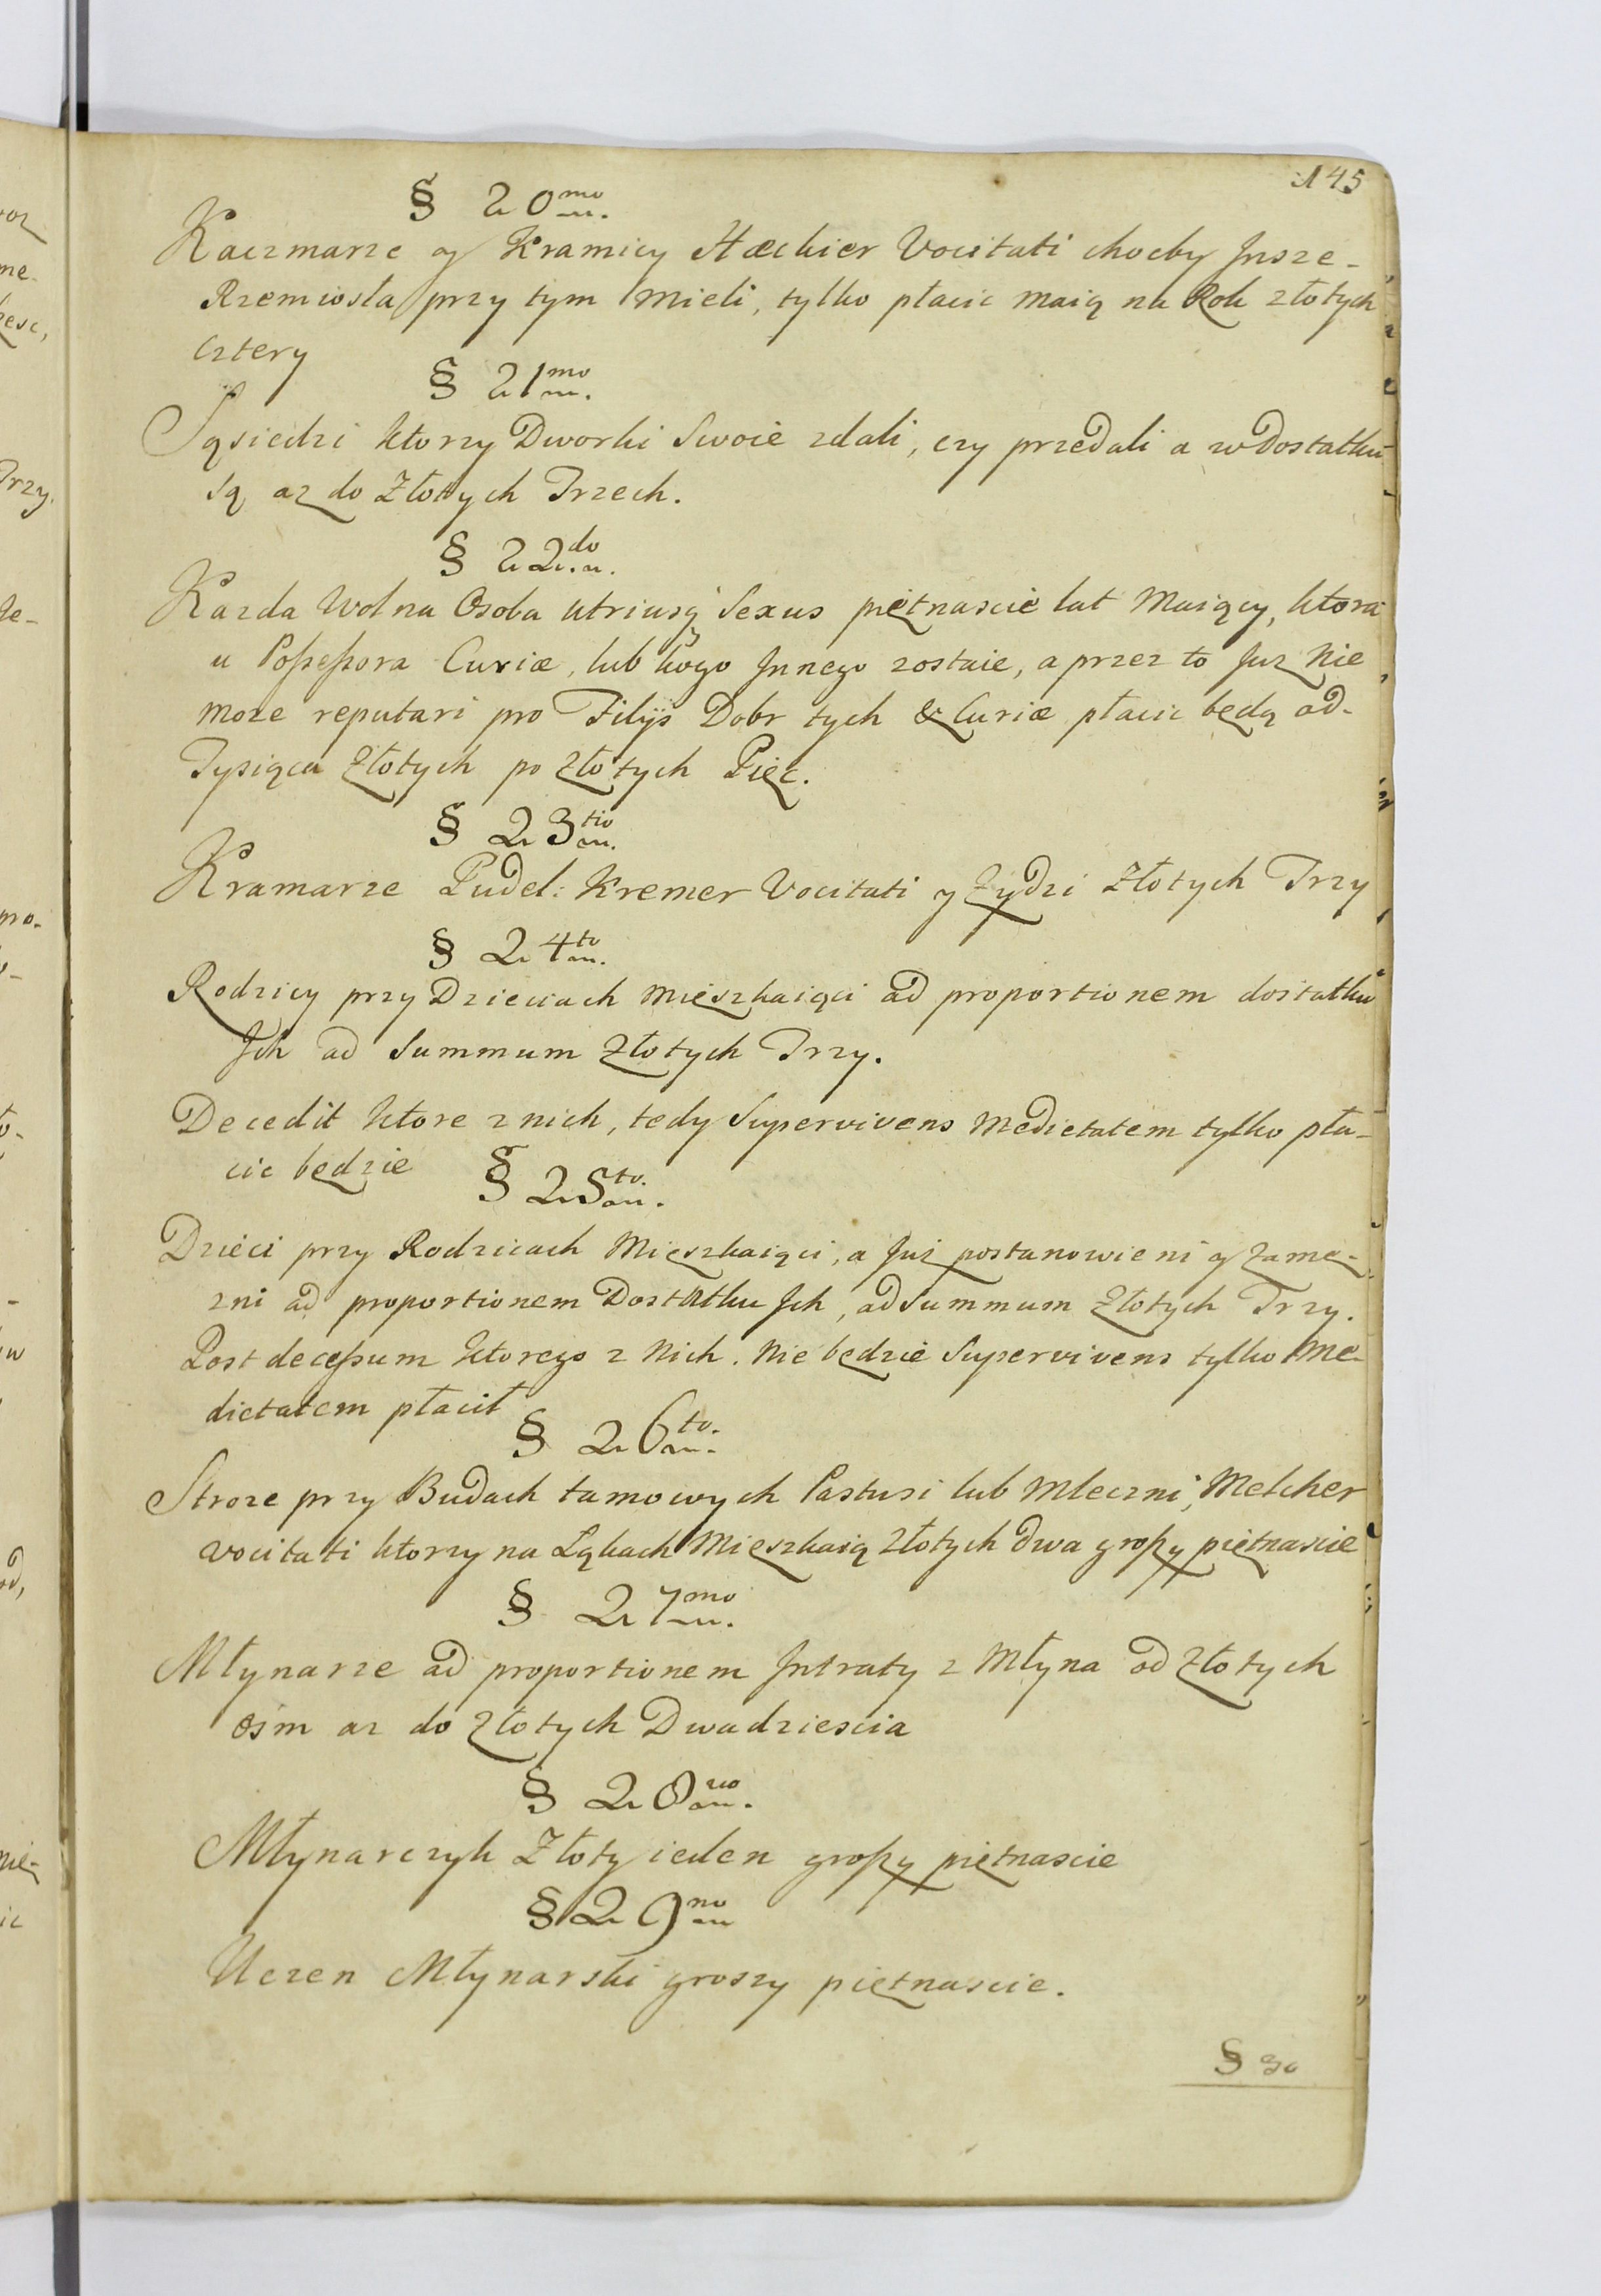 145
§ 20mo
Kaczmarze y Kramicy Hæckier Vocitati choćby Jnsze-
Rzemiosła przy tym Mieli, tylko płacic maią na Rok złotych
cztery
§ 21mo
Sąsiedzi ktorzy Dworki Swoie zdali, czy przedali a w Dostatku
są az do Złotych Trzech.
§ 22do
Kazda Wolna Osoba utriusq Sexus pietnascie lat Maiący, ktora
u Possessora Curiæ, lub kogo Jnnego zostaie, a przez to Juz Nie
moze reputari pro Filijs Dobr tych & Curiæ płacic będą od-
Tysiąca Złotych po Złotych Pięc.
§ 23tio
Kramarze Pudel: Kremer Vocitati y Zydzi Złotych Trzy
§ 24to
Rodzicy przy Dzieciach mieszkaiąci ad proportionem dostatku
Jch ad Summum Złotych Trzy.
Decedit ktore z nich, tedy Supervivens Medietatem tylko pła-
cic będzie
§ 25to.
Dzieci przy Rodzicach Mieszkaiąci, a Juz postanowieni y zamę-
zni ad proportionem Dostatku Jch, ad Summum Złotych Trzy.
Post decessum ktorego z Nich. Nie będzie Supervivens tylko Me-
dietatem płacił
§ 26to.
Stroze przy Budach tamowych Pastusi lub Mleczni, Melcher
vocitati ktorzy na Łąkach Mieszkaią Złotych dwa groszy piętnascie
§ 27mo
Młynarze ad proportionem Jntraty z Młyna od Złotych
osm az do Złotych Dwadziescia
§ 28vo
Młynarczyk Złoty ieden groszy piętnascie
§ 29no
Uczen Młynarski groszy piętnascie.
§ 30